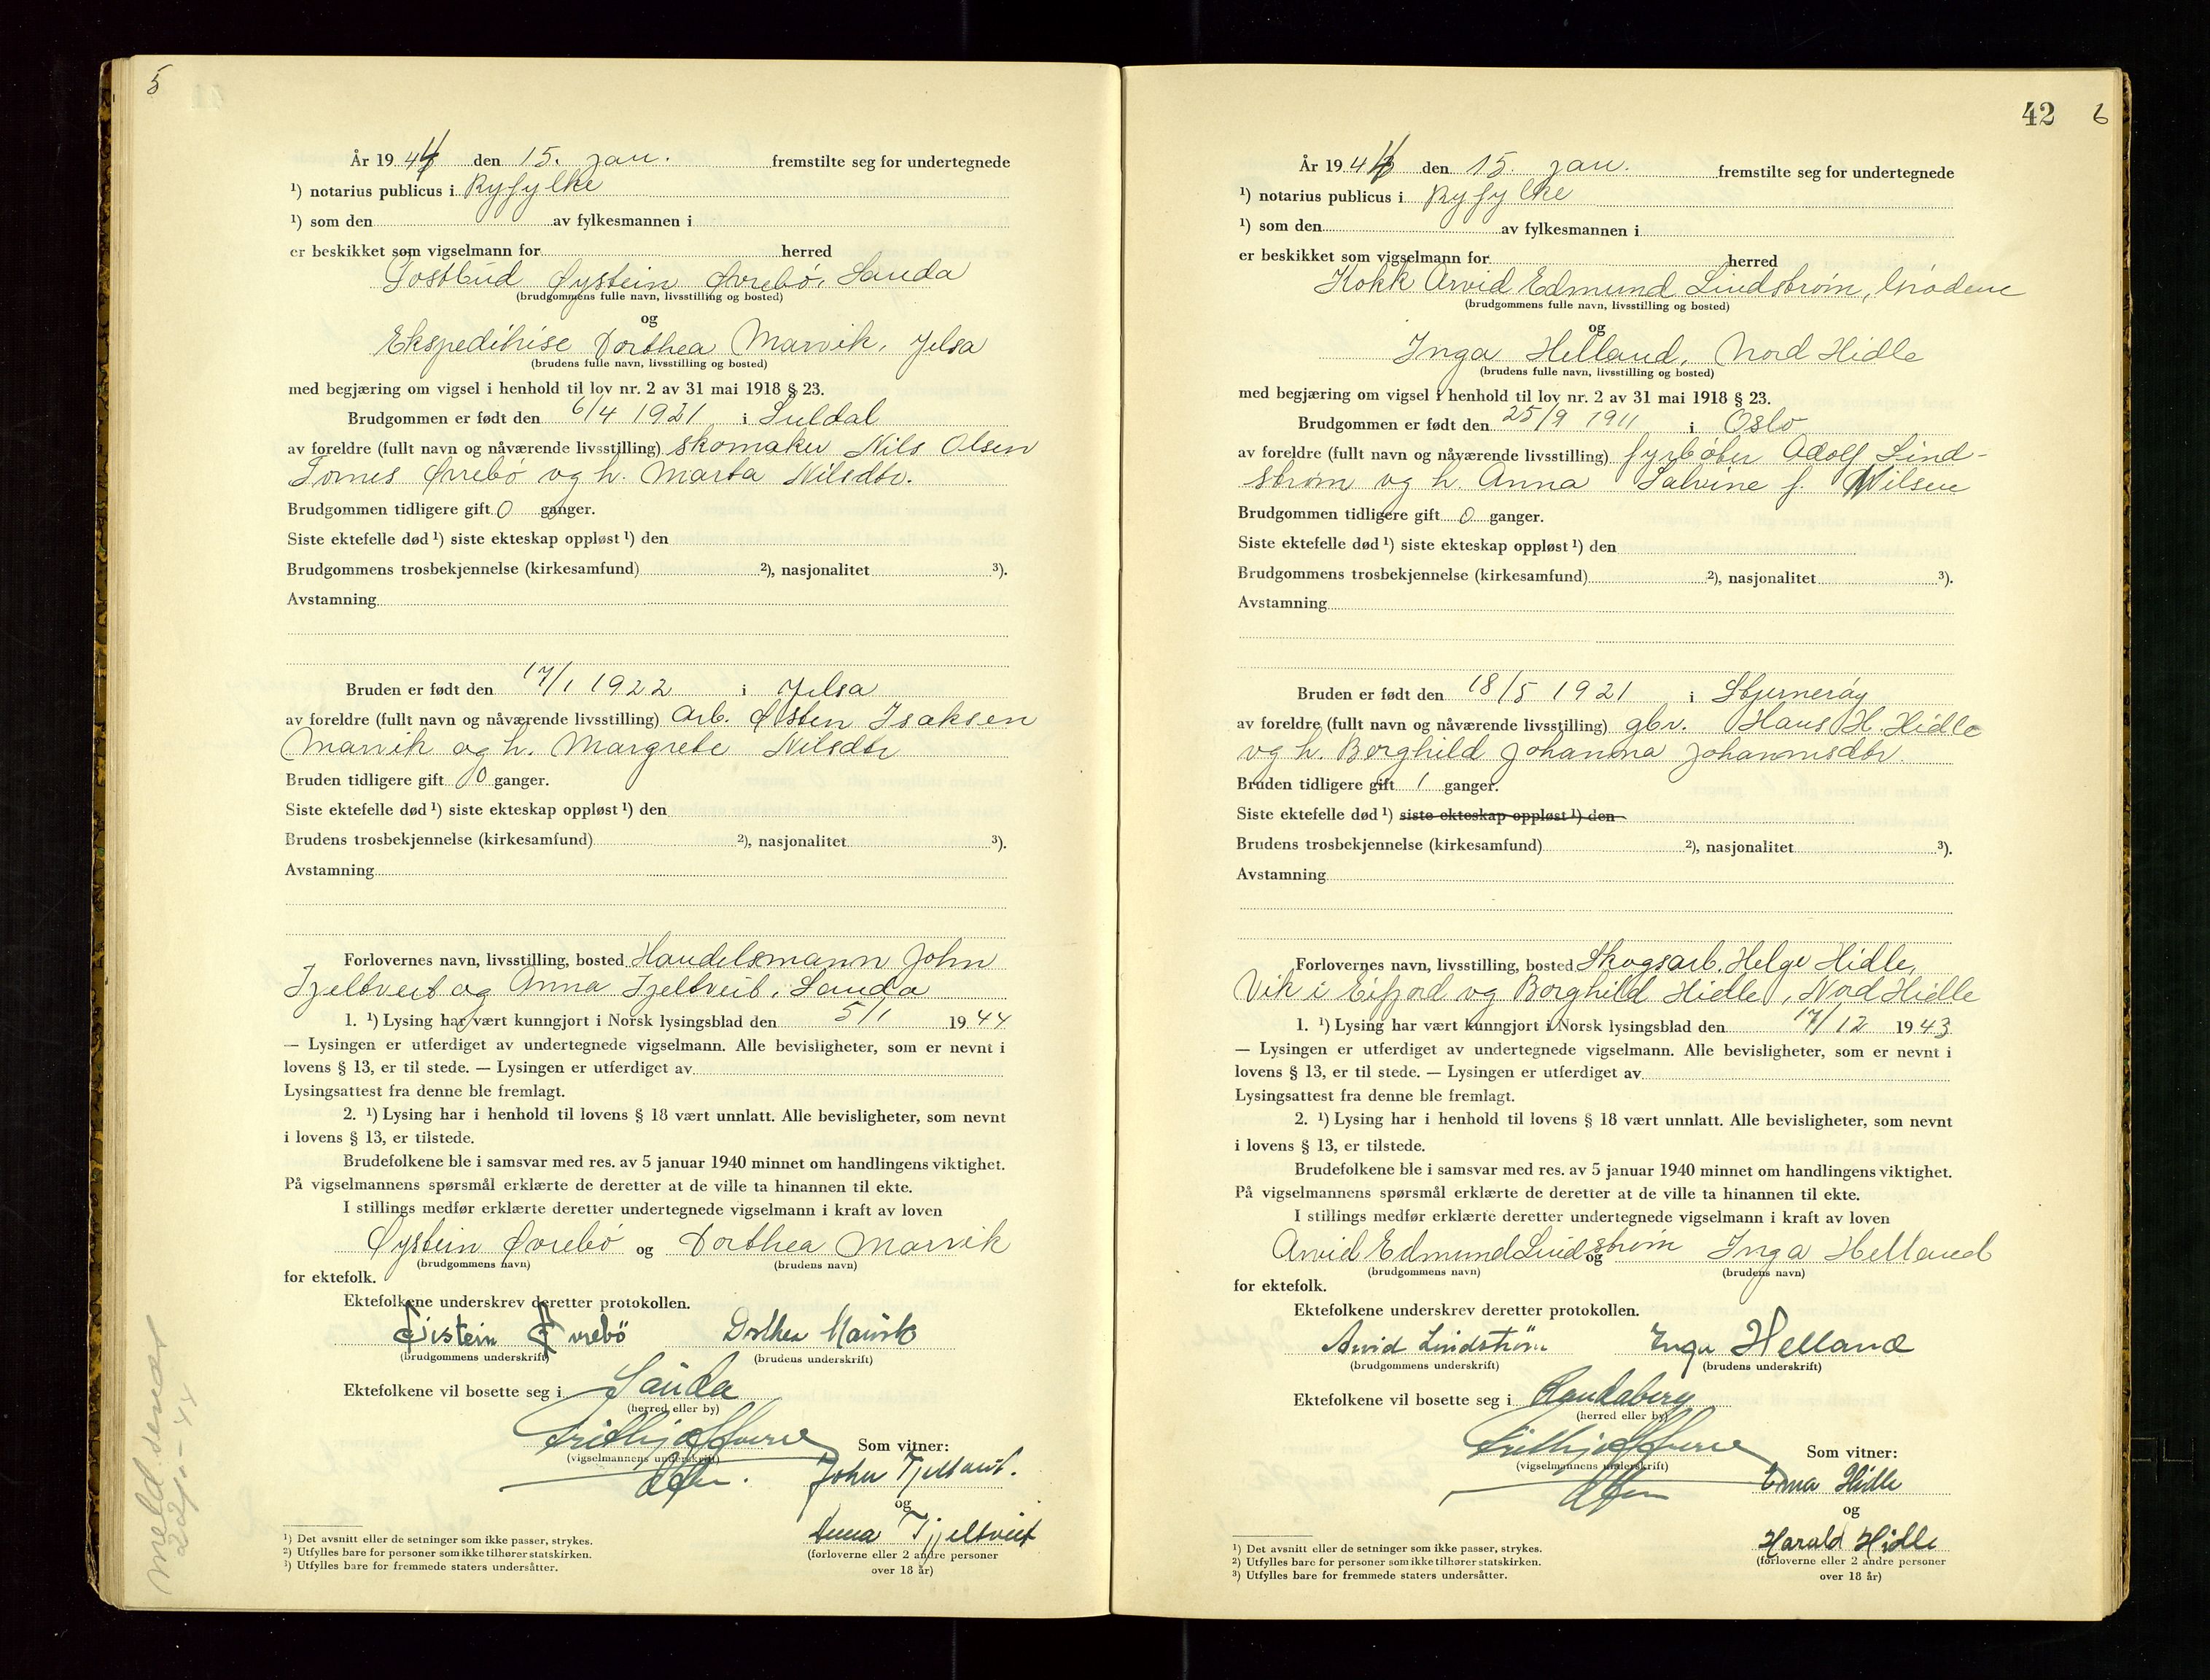 5
År 1944 den 15. jan. fremstilte seg for undertegnede
¹) notarius publicus i Ryfylke
¹) som den av fylkesmannen i
er beskikket som vigselmann for herred
Postbud Øystein Øvrebø, Sauda
(brudgommens fulle navn, livsstilling og bosted)
og
Ekspeditrise Dorthea Marvik, Jelsa
(brudens fulle navn, livsstilling og bosted)
med begjæring om vigsel i henhold til lov nr. 2 av 31 mai 1918 § 23.
Brudgommen er født den 6/4 1921 i Suldal
av foreldre (fullt navn og nåværende livsstilling) skomaker Nils Olsen
Tornes Øvrebø og h. Marta Nilsdtr.
Brudgommen tidligere gift 0 ganger.
Siste ektefelle død ¹) siste ekteskap oppløst ¹) den
Brudgommens trosbekjennelse (kirkesamfund) ²), nasjonalitet ³).
Avstamning
Bruden er født den 17/1 1922 i Jelsa
av foreldre (fullt navn og nåværende livsstilling) arb. Østen Isaksen
Marvik og h. Margrete Nilsdtr
Bruden tidligere gift 0 ganger.
Siste ektefelle død ¹) siste ekteskap oppløst ¹) den
Brudens trosbekjennelse (kirkesamfund) ²), nasjonalitet ³).
Avstamning
Forlovernes navn, livsstilling, bosted Handelsmann John
Tjeltveit og Anna Tjeltveit, Sauda
1. ¹) Lysing har vært kunngjort i Norsk lysingsblad den 5/1 1944
— Lysingen er utferdiget av undertegnede vigselmann. Alle bevisligheter, som er nevnt i
lovens § 13, er til stede. — Lysingen er utferdiget av
Lysingsattest fra denne ble fremlagt.
2. ¹) Lysing har i henhold til lovens § 18 vært unnlatt. Alle bevisligheter, som nevnt
i lovens § 13, er tilstede.
Brudefolkene ble i samsvar med res. av 5 januar 1940 minnet om handlingens viktighet.
På vigselmannens spørsmål erklærte de deretter at de ville ta hinannen til ekte.
I stillings medfør erklærte deretter undertegnede vigselmann i kraft av loven
Øystein Øvrebø og Dorthea Marvik
(brudgommens navn) (brudens navn)
for ektefolk.
Ektefolkene underskrev deretter protokollen.
Øistein Øvrebö Dorthea Marvik
(brudgommens underskrift) (brudens underskrift)
Ektefolkene vil bosette seg i Sauda
(herred eller by)
(vigselmannens underskrift)
Som vitner:
John Tjeltveit.
og
Anna Tjeltveit
(forloverne eller 2 andre personer
over 18 år)
¹) Det avsnitt eller de setninger som ikke passer, strykes.
²) Utfylles bare for personer som ikke tilhører statskirken.
³) Utfylles bare for fremmede staters undersåtter.
42 6
År 1944 den 15. jan. fremstilte seg for undertegnede
¹) notarius publicus i Ryfylke
¹) som den av fylkesmannen i
er beskikket som vigselmann for herred
Kokk Arvid Edmund Lindstrøm, Grødem
(brudgommens fulle navn, livsstilling og bosted)
og
Inga Helland, Nord Hidle
(brudens fulle navn, livsstilling og bosted)
med begjæring om vigsel i henhold til lov nr. 2 av 31 mai 1918 § 23.
Brudgommen er født den 25/9 1911 i Oslo
av foreldre (fullt navn og nåværende livsstilling) fyrbøter Adolf Lind-
strøm og h. Anna Salvine f. Nilsen
Brudgommen tidligere gift 0 ganger.
Siste ektefelle død ¹) siste ekteskap oppløst ¹) den
Brudgommens trosbekjennelse (kirkesamfund) ²), nasjonalitet ³).
Avstamning
Bruden er født den 18/5 1921 i Stjernerøy
av foreldre (fullt navn og nåværende livsstilling) gbr. Hans H. Hidle
og h. Borghild Johanna Johannsdtr.
Bruden tidligere gift 1 ganger.
Siste ektefelle død ¹) siste ekteskap oppløst ¹) den
Brudens trosbekjennelse (kirkesamfund) ²), nasjonalitet ³).
Avstamning
Forlovernes navn, livsstilling, bosted Skogsarb. Helge Hidle,
Vik i Eifjord og Borghild Hidle, Nord Hidle
1. ¹) Lysing har vært kunngjort i Norsk lysingsblad den 17/12 1943
— Lysingen er utferdiget av undertegnede vigselmann. Alle bevisligheter, som er nevnt i
lovens § 13, er til stede. — Lysingen er utferdiget av
Lysingsattest fra denne ble fremlagt.
2. ¹) Lysing har i henhold til lovens § 18 vært unnlatt. Alle bevisligheter, som nevnt
i lovens § 13, er tilstede.
Brudefolkene ble i samsvar med res. av 5 januar 1940 minnet om handlingens viktighet.
På vigselmannens spørsmål erklærte de deretter at de ville ta hinannen til ekte.
I stillings medfør erklærte deretter undertegnede vigselmann i kraft av loven
Arvid Edmund Lindstrøm og Inga Helland
(brudgommens navn) (brudens navn)
for ektefolk.
Ektefolkene underskrev deretter protokollen.
Arvid Lindstrøm Inga Helland
(brudgommens underskrift) (brudens underskrift)
Ektefolkene vil bosette seg i Randaberg
(herred eller by)
(vigselmannens underskrift)
Som vitner:
Erna Hidle
og
Harald Hidle
(forloverne eller 2 andre personer
over 18 år)
¹) Det avsnitt eller de setninger som ikke passer, strykes.
²) Utfylles bare for personer som ikke tilhører statskirken.
³) Utfylles bare for fremmede staters undersåtter.